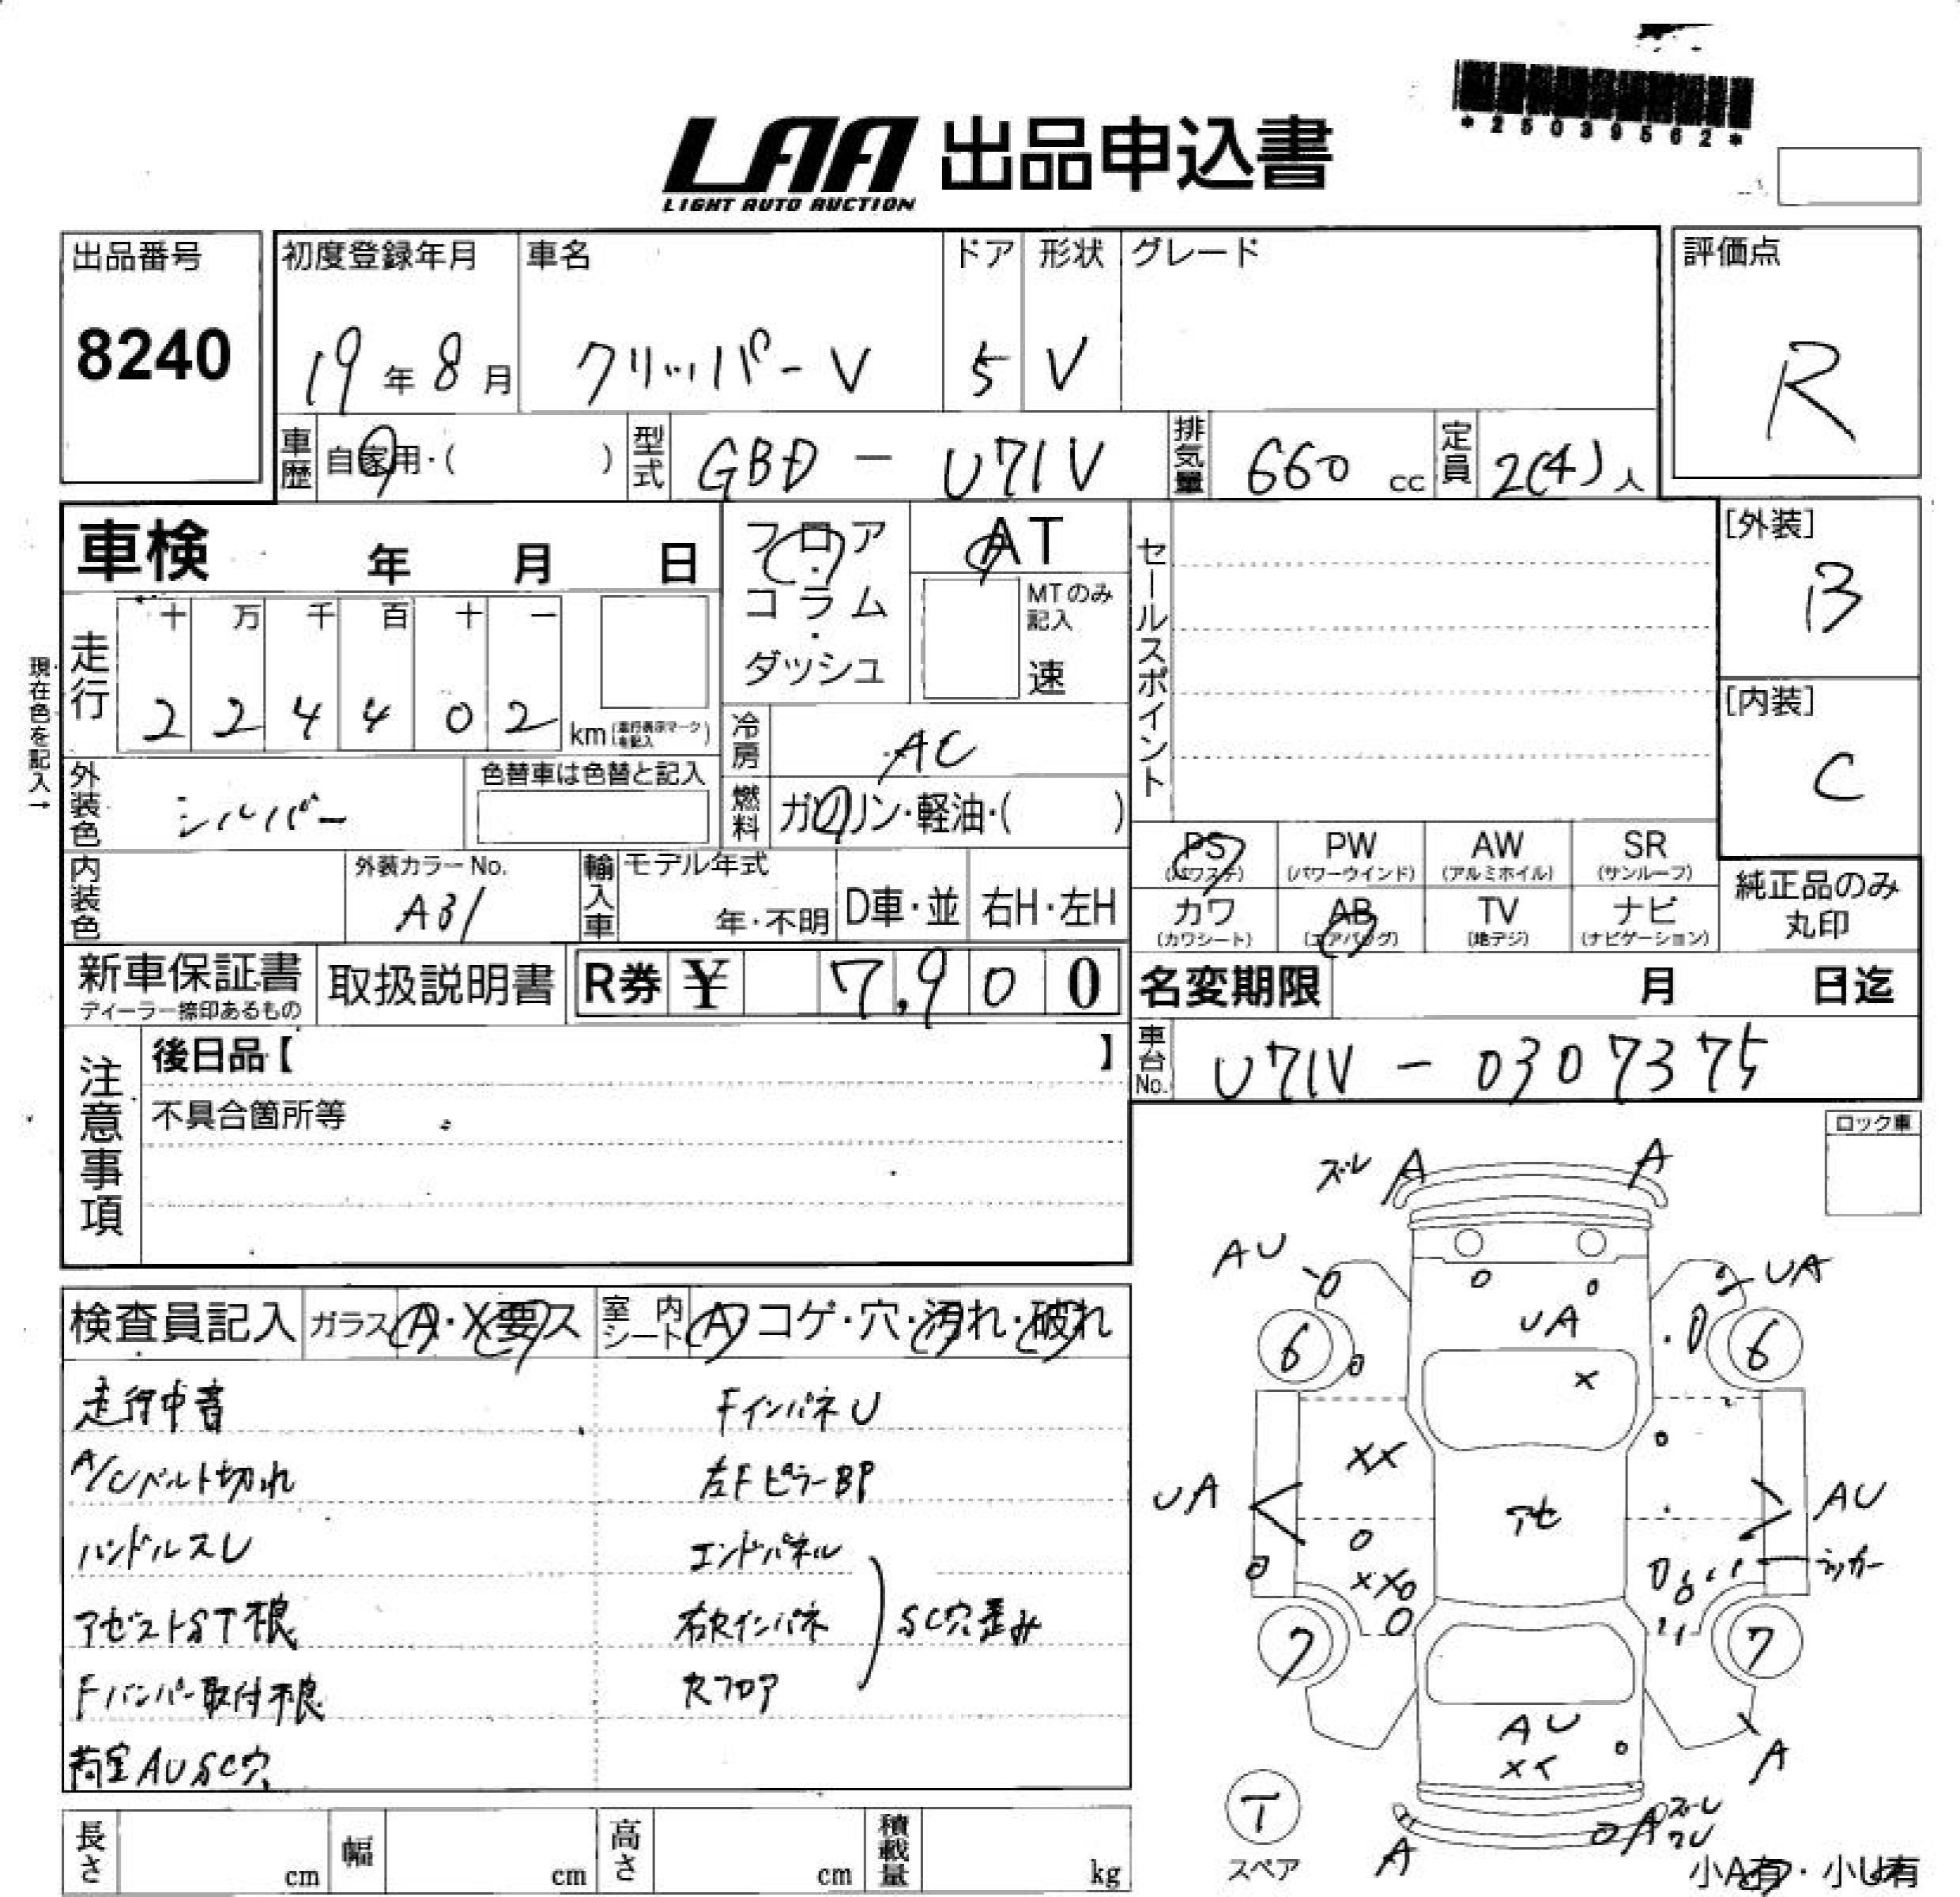 *25039562*
LAA 出品申込書
LIGHT AUTO AUCTION
出品番号
8240
初度登録年月
19年8月
車名
クリッパーV
ドア
5
形状
V
グレード
評価点
R
車歴 自家用・( )
型式 GBD-U71V
排気量 660 cc
定員 2(4)人
車検 年 月 日
フロア・コラム・ダッシュ
AT
MTのみ記入
速
セールスポイント
[外装]
B
[内装]
C
現在色を記入→
走行
十 万 千 百 十 一
2 2 4 4 0 2
km
冷房 AC
燃料 ガソリン・軽油・( )
外装色 シルバー
色替車は色替と記入
内装色
外装カラーNo.
A31
輸入車
モデル年式
年・不明
D車・並
右H・左H
PS (パワステ)
PW (パワーウインド)
AW (アルミホイル)
SR (サンルーフ)
カワ (カワシート)
AB (エアバッグ)
TV (地デジ)
ナビ (ナビゲーション)
純正品のみ
丸印
新車保証書
ディーラー捺印あるもの
取扱説明書
R券 ¥ 7,900
名変期限 月 日迄
車台No. U71V-0307375
注意事項
後日品【 】
不具合箇所等
ロック車
検査員記入
ガラス A・X要ス
室内シート A コゲ・穴・汚れ・破れ
走行中音
A/Cベルト切れ
ハンドルスレ
アゼストST不良
Fバンパー取付不良
荷室AUSC穴
FインパネU
左FピラーBP
エンドパネル
右Rインパネ
Rフロア
SC穴歪み
ズレ A A
AU
UA
UA
6
6
X
XX
UA
アセ
AU
XX
ラッカー
7
7
AU
A
T
スペア
A
A ズレ
小A有・小U有
長さ cm
幅 cm
高さ cm
積載量 kg